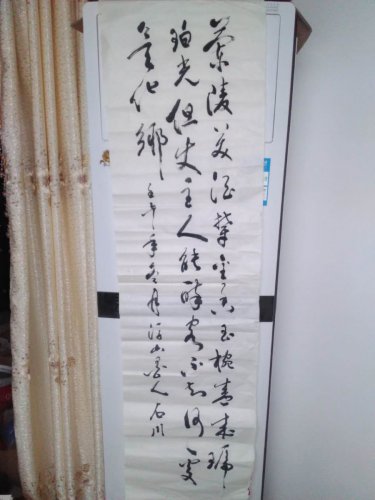 蘭陵美酒欝金香玉椀盛来琥
珀光但使主人能醉客不知何处
是他鄉 壬午年冬月 山墨人石川